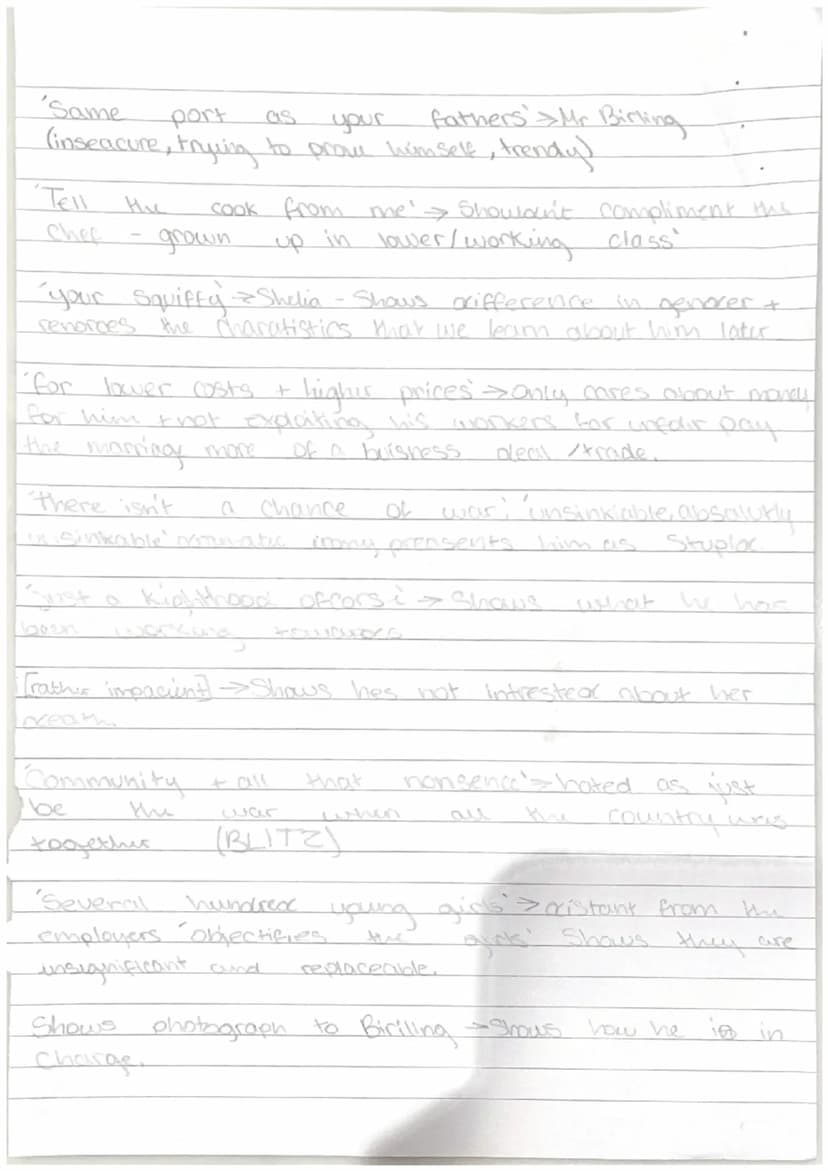 'Same port as your fathers' → Mr Birling
(inseacure, trying to prove himself, trendy)
'Tell the cook from me' → Shouldn't compliment the
Chef - grown up in lower/working class'
'your squiffy' → Shelia - Shows difference in gender +
renorces the charatistics that we learn about him later
'for lower costs + higher prices' → Only cares about money
for him + not exploiting his workers for unfair pay
the marriage more of a buisness deal / trade.
'there isn't a chance of war', 'unsinkiable, absolutly
insinkable' irony, presents him as Stupid
'Just a Kighthood of → Shows what he has
been working towards
[rather impacient] → Shows hes not intrested about her
death.
'Community + all that nonsence' → hated as just
be the war when all the country was
toogether (BLITZ)
'Several hundred young girls' → distant from the
employers 'objectifies the girls' Shows they are
unsignificant and replaceable.
Shows photograph to Biriling → Shows how he is in
Charge.